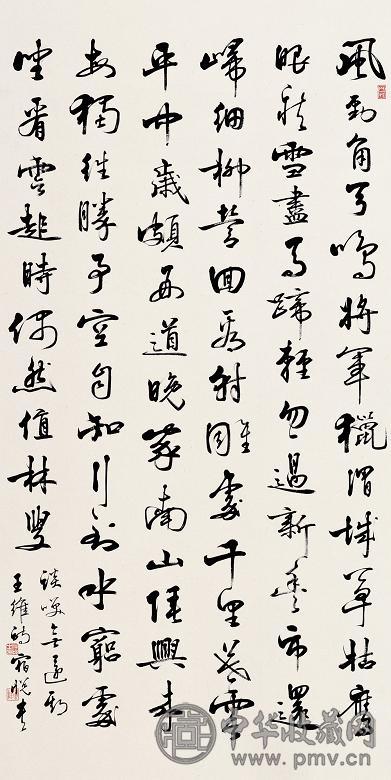 風勁角弓鳴將軍獵渭城草枯鷹
眼疾雪盡馬蹄輕忽過新豐市還
歸細柳營回看射雕處千里暮雲
平中歲頗好道晚家南山陲興來
每獨往勝事空自知行到水窮處
坐看雲起時偶然值林叟
談笑無還期
王維詩宿悅書
中华收藏网
www.pmv.cn